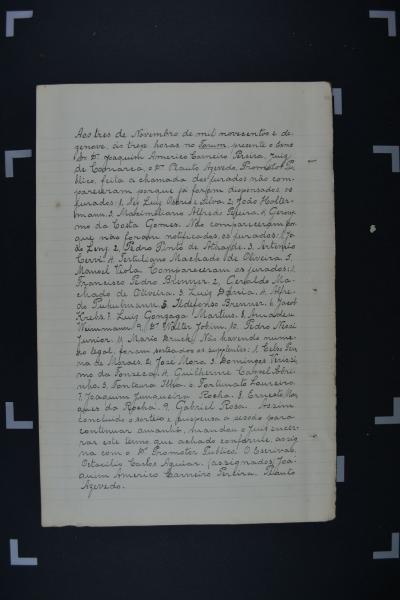 Aos tres de Novembro de mil novecentos e de-
zenove, ás treze horas no Forum, presente o Exmo
Sr. Dr. Joaquim Americo Carneiro Pereira, Juiz
de Comarca, o Dr. Plauto Azevedo, Promotor Pu-
blico, feita a chamada dos jurados não com-
pareceram porque já foram dispensados os
jurados: 1. Ney Luiz Osorio e Silva 2. João Holter-
mann. 3. Maximiliano Alfredo 4. Gerony-
mo da Costa Gomes. Não compareceram por-
que não foram notificados, os jurados: 1. Jo-
ão 2. Pedro Pinto de Athayde. 3. Artemio
Cervi. 4. Tertuliano Machado de Oliveira. 5.
Manoel Viola. Compareceram os jurados: 1.
Francisco Pedro Brenner. 2. Geraldo Ma-
chado de Oliveira. 3. Luiz 4. Alfre-
do 5. Ildefonso Brenner. 6. Jacob
Krebs. 7. Luiz Gonzaga Martins. 8. Amadeu
Weinmann. 9. Dr. Walter Jobim. 10. Pedro
Junior. 11. Mario Não havendo nume-
ro legal, foram sorteados os supplentes: 1. Celso Pen-
na de Moraes. 2. José Mora. 3. Domingos
mo da Fonseca. 4. Guilherme Cassel
nho. 5. Fontoura Ilha. 6. Fortunato Loureiro.
7. Joaquim Junqueira Rocha. 8. Ernesto Mar-
ques da Rocha. 9. Gabriel Rosa. Assim
concluido o sorteio, e suspensa a sessão para
continuar amanhã, mandou o Juiz encer-
rar este termo, que achado conforme, assig-
na com o Dr. Promotor Publico. O Escrivão,
Octacilio Carlos Aguiar. (assignados) Joa-
quim Americo Carneiro Pereira. Plauto
Azevedo.